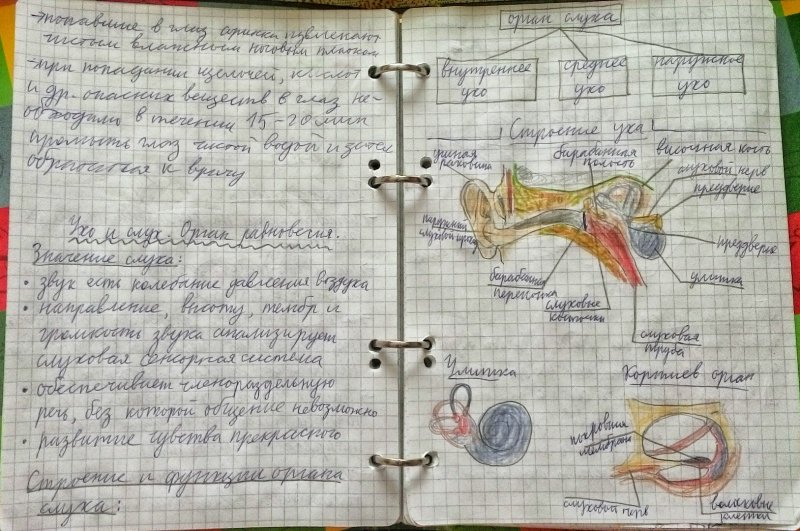 →попавшие в глаз соринки извлекают
чистым влажным носовым платком
-при попадании щелочей, кислот
и др. опасных веществ в глаз не-
обходимо в течении 15-20 мин
промыть глаз чистой водой и затем
обратиться к врачу
Ухо и слух. Орган равновесия.
Значение слуха:
• звук есть колебание давления воздуха
• направление, высоту, тембр и
громкость звука анализирует
слуховая сенсорная система
• обеспечивает членораздельную
речь, без которой общение невозможно
• развитие чувства прекрасного
Строение и функции органа
слуха:
орган слуха
внутреннее
ухо
среднее
ухо
наружное
ухо
Строение уха
ушная
раковина
барабанная
полость
височная кость
слуховой нерв
преддверие
наружный
слуховой проход
преддверие
улитка
барабанная
перепонка
слуховые
косточки
слуховая
труба
Улитка
Кортиев орган
покровная
мембрана
слуховой нерв
волосковые
клетки